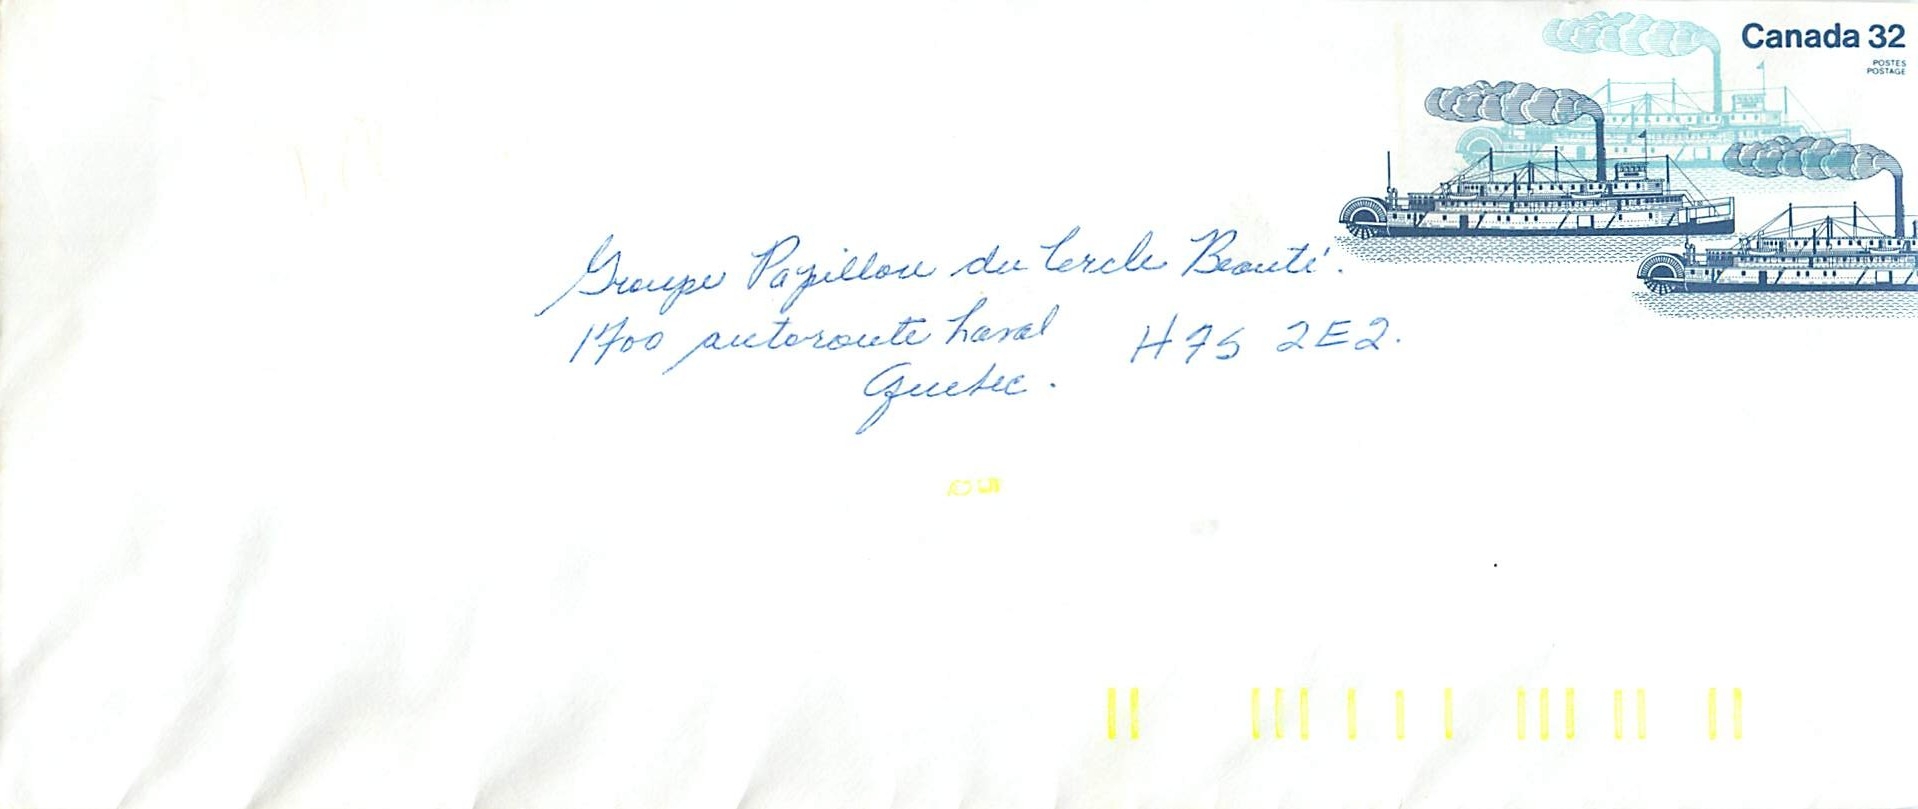 Canada 32
POSTES
POSTAGE
Groupe Papillon du Cercle Beauté.
1700 autoroute Laval H7S 2E2.
Quebec.